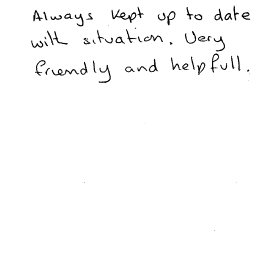 Always kept up to date
with situation. Very
friendly and helpfull.